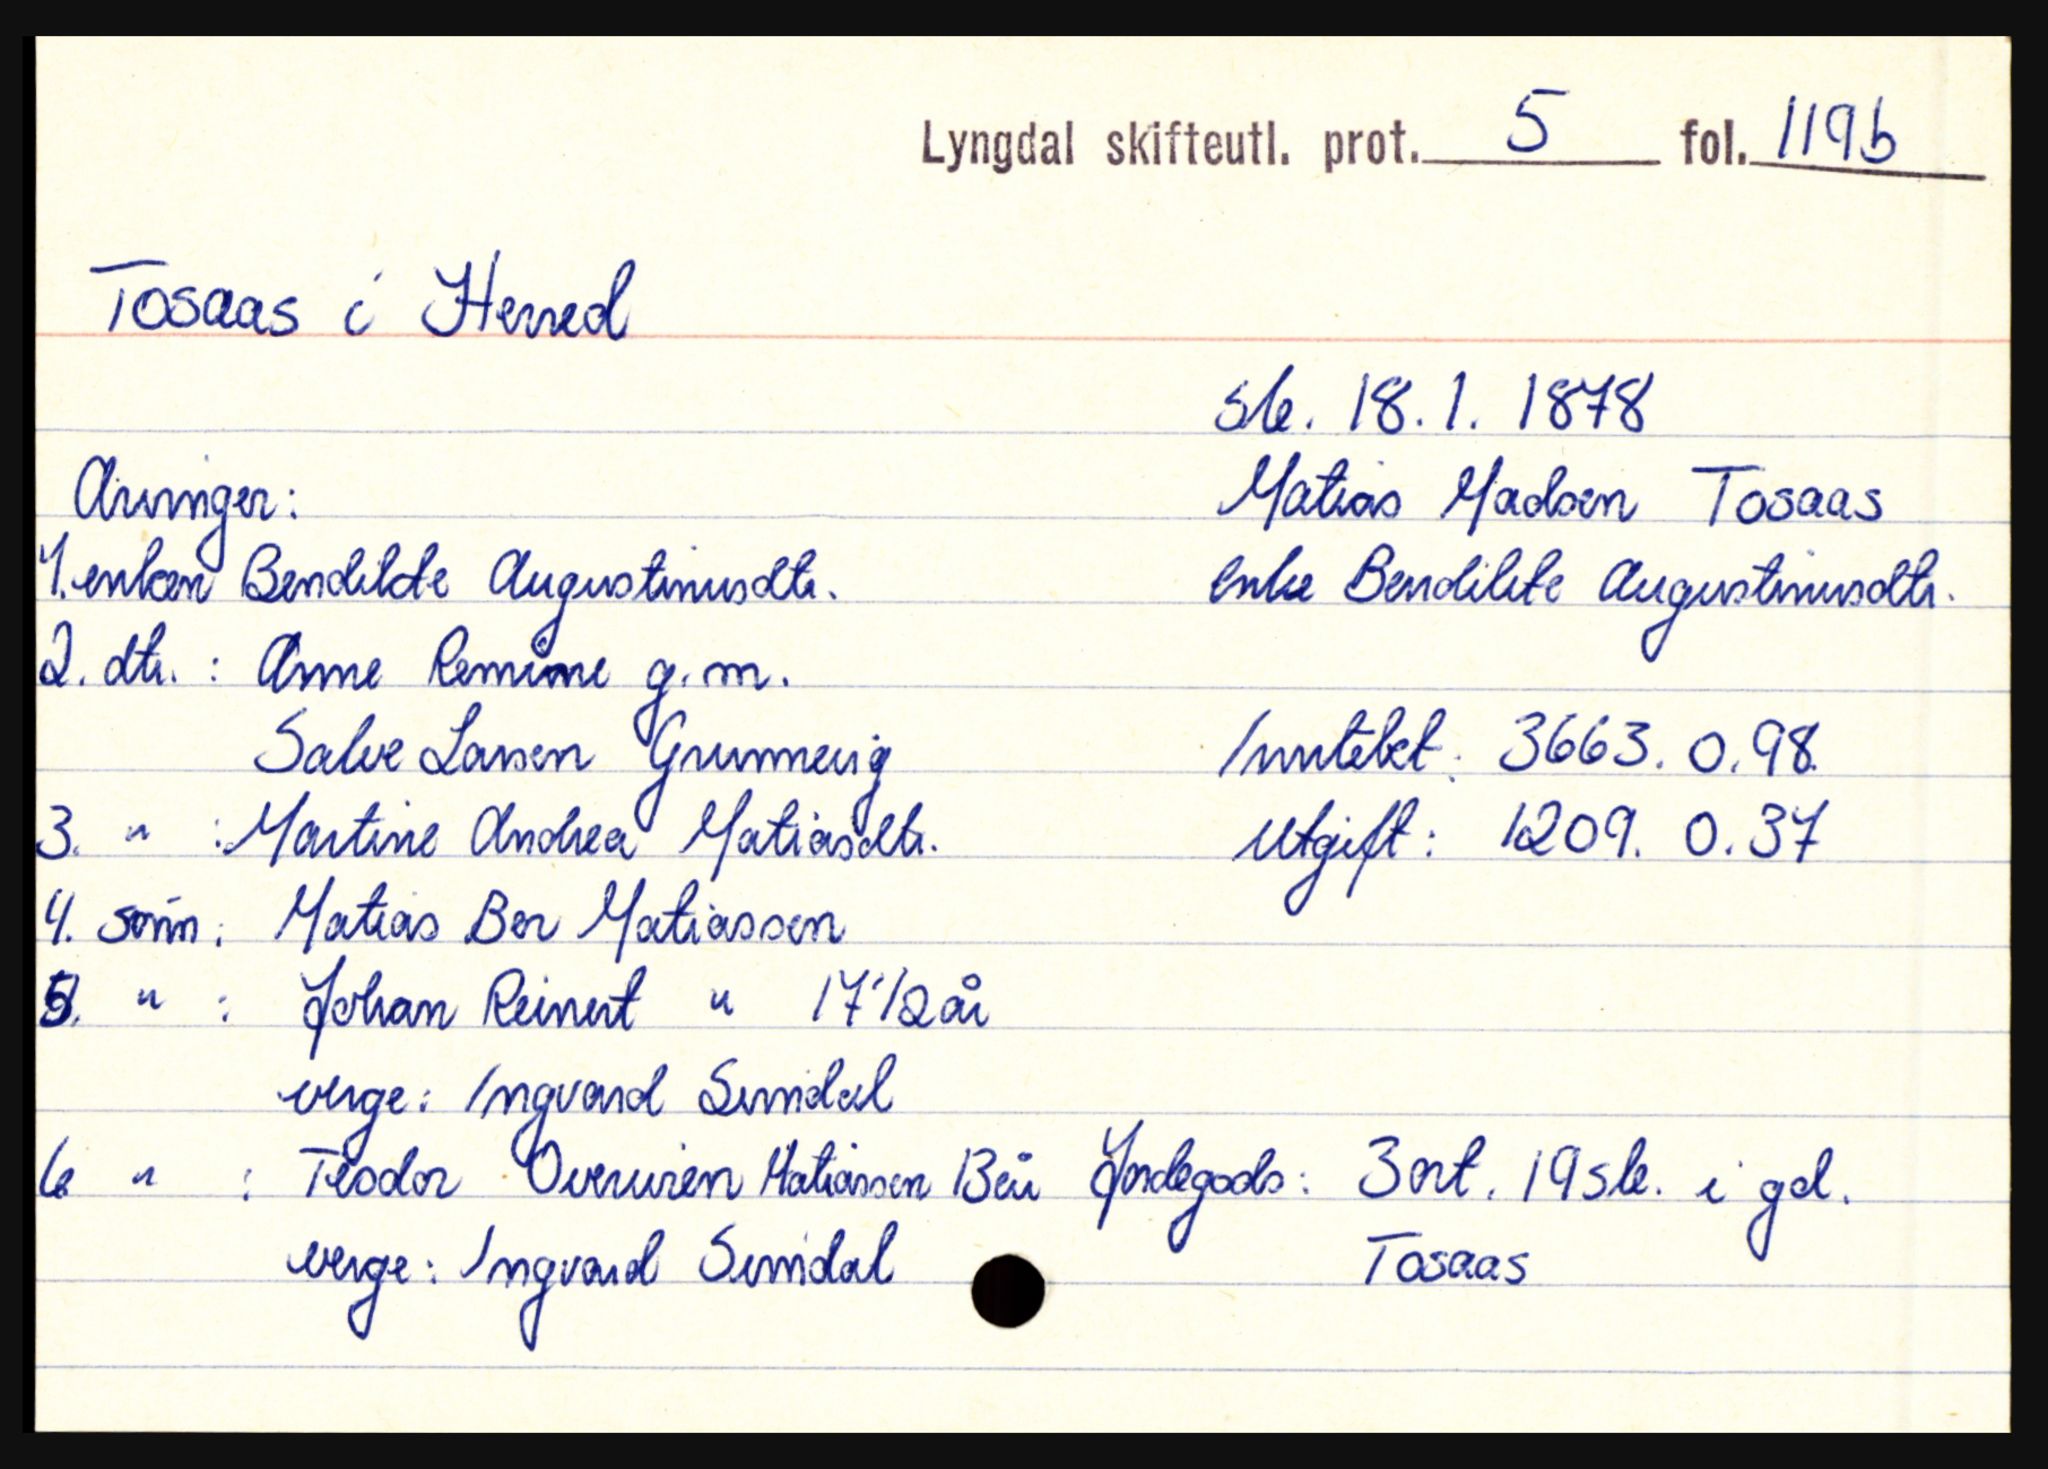 Lyngdal skifteutl. prot. 5 fol. 119b
Tosaas i Herred
sk. 18.1.1878
Arvinger:
Matias Madsen Tosaas
1. enken Bendikte Augustinusdtr.
enke Bendikte Augustinusdtr.
2. dtr. : Anne Remine g.m.
Salve Larsen Grummevig
Inntekt: 3663.0.98.
3. " : Martine Andrea Matiasdtr.
Utgift: 1209.0.37
4. sønn: Matias Ber Matiassen
5. " : Johan Reinert " 17 1/2 år
verge: Ingvard Sundal
6 " : Teodor Overvien Matiassen 13 år
Jordegods: 3 ort. 19 sk. i gd.
verge: Ingvard Sundal
Tosaas